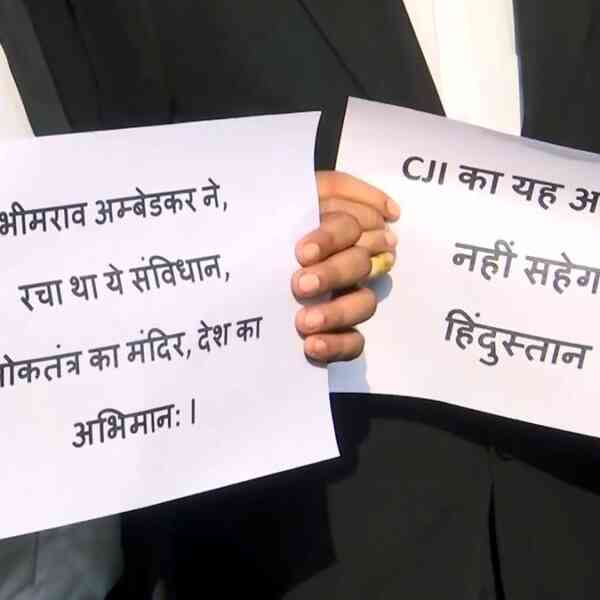 भीमराव अम्बेडकर ने,
रचा था ये संविधान,
का मंदिर, देश का
अभिमानः ।
CJI का यह
नहीं
हिंदुस्तान